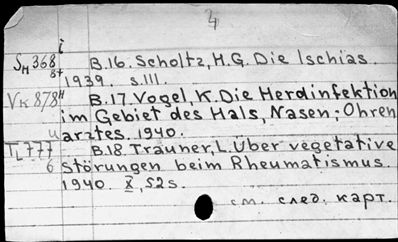 4
i
Sм 368 B.16. Scholtz, H.G. Die Ischias.
8+ 1939. s.111.
Vк 878 н B.17. Vogel, K. Die Herdinfektion
im Gebiet des Hals, Nasen; Ohren
u arztes. 1940.
TL 777 B.18. Trauner, L. Über vegetative
6 Störungen beim Rheumatismus.
1940. X, 52 s.
см. след. карт.